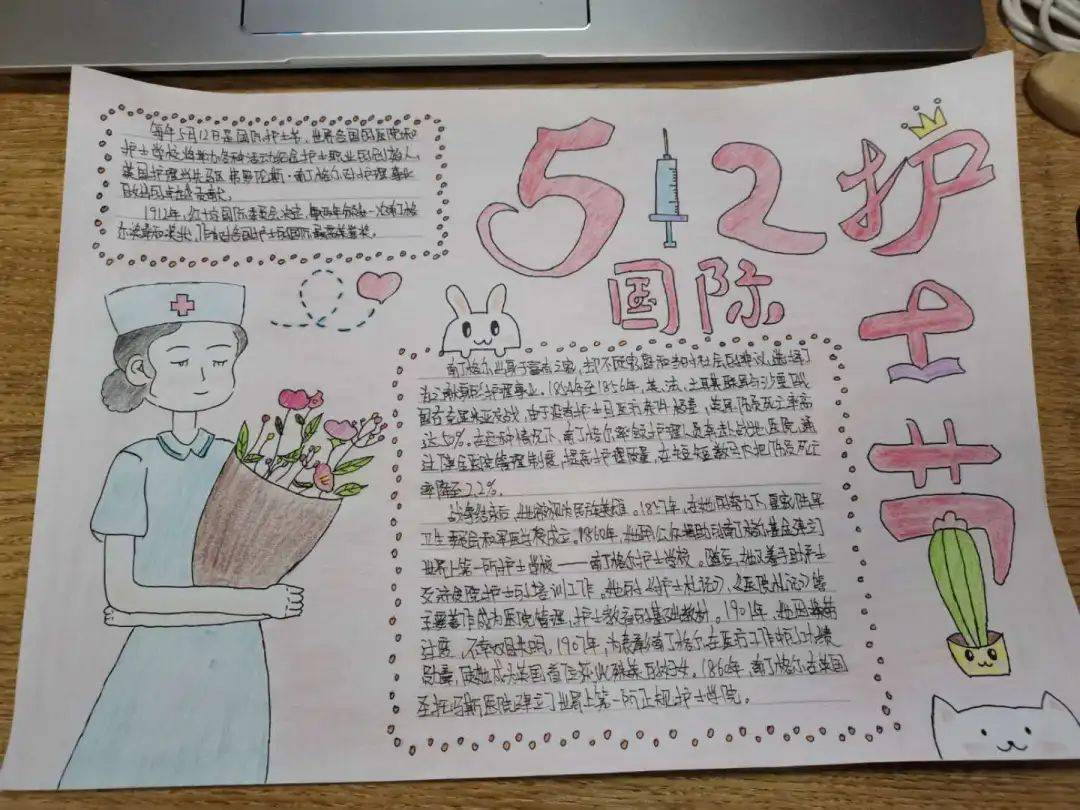 每年5月12日是国际护士节,世界各国的医院和
护士学校将举办各种活动纪念护士职业的创始人、
英国护理学先驱弗罗伦斯·南丁格尔为护理事业
作出的卓越贡献。
1912年,红十字国际委员会决定,每两年颁发一次南丁格
尔奖章和奖状,作为对各国护士的国际最高荣誉奖。
5 12 护士节
国际
南丁格尔出身于富有之家,却不顾家庭和当时社会的非议,选择了
为之献身的护理事业。1854年至1856年,英、法、土耳其联军与沙皇俄
国在克里米亚交战,由于没有护士且医疗条件恶劣,英军伤员死亡率高
达50%。在这种情况下,南丁格尔率领护理人员奔赴战地医院,通
过健全医院管理制度,提高护理质量,在短短数月内把伤员死亡
率降至2.2%。
战争结束后,她被视为民族英雄。1857年,在她的努力下,皇家陆军
卫生委员会和军医学校成立。1860年,她用公众捐助的南丁格尔基金建立了
世界上第一所护士学校——南丁格尔护士学校。随后,她又着手助产士
及济贫院护士的培训工作。她的《护士札记》、《医院札记》等
主要著作成为医院管理,护士教育的基础教材。1901年,她因操劳
过度,不幸双目失明。1907年,为表彰南丁格尔在医疗工作中的卓越
勋章,使她成为英国首位获此殊荣的妇女。1860年,南丁格尔在英国
圣托玛斯医院建立了世界上第一所正规护士学院。